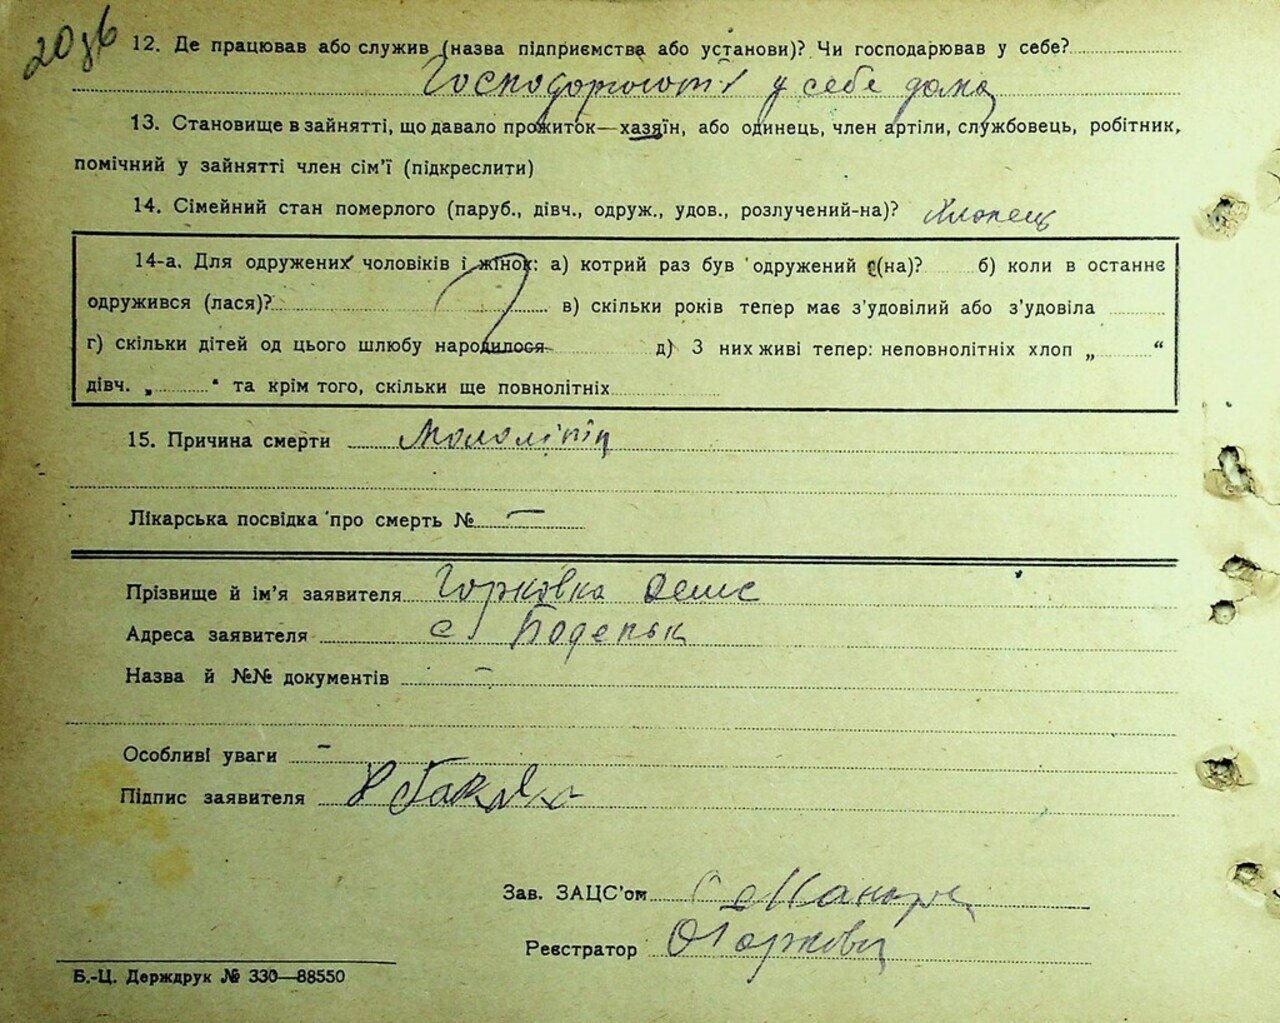 20зв
12. Де працював або служив (назва підприємства або установи)? Чи господарював у себе?
у себе дома
13. Становище в зайнятті, що давало прожиток—хазяїн, або одинець, член артіли, службовець, робітник,
помічний у зайнятті член сім'ї (підкреслити)
14. Сімейний стан померлого (паруб., дівч., одруж., удов., розлучений-на)? Хлопець
14-а. Для одружених чоловіків і жінок: а) котрий раз був одружений (на)? б) коли в останнє
одружився (лася)? в) скільки років тепер має з'удовілий або з'удовіла
г) скільки дітей од цього шлюбу народилося д) З них живі тепер: неповнолітніх хлоп „ “
дівч. „ “ та крім того, скільки ще повнолітніх
15. Причина смерти
Лікарська посвідка про смерть № —
Прізвище й ім'я заявителя Горковка
Адреса заявителя с
Назва й №№ документів —
Особливі уваги —
Підпис заявителя
Зав. ЗАЦС'ом
Реєстратор
Б.-Ц. Держдрук № 330—88550